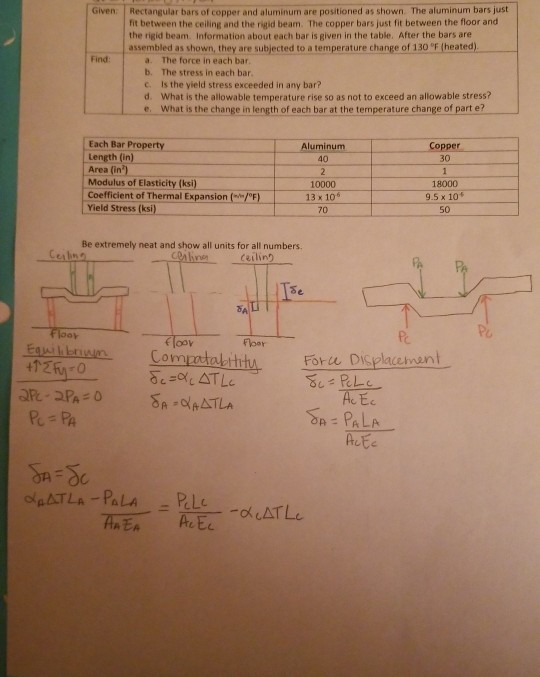 Given: Rectangular bars of copper and aluminum are positioned as shown. The aluminum bars just
fit between the ceiling and the rigid beam. The copper bars just fit between the floor and
the rigid beam. Information about each bar is given in the table. After the bars are
assembled as shown, they are subjected to a temperature change of 130 °F (heated).
Find: a. The force in each bar.
b. The stress in each bar.
c. Is the yield stress exceeded in any bar?
d. What is the allowable temperature rise so as not to exceed an allowable stress?
e. What is the change in length of each bar at the temperature change of part e?
Each Bar Property Aluminum Copper
Length (in) 40 30
Area (in²) 2 1
Modulus of Elasticity (ksi) 10000 18000
Coefficient of Thermal Expansion (in/in/°F) 13 x 10⁻⁶ 9.5 x 10⁻⁶
Yield Stress (ksi) 70 50
Be extremely neat and show all units for all numbers.
Ceiling ceiling ceiling
δc
δA
PA PA
Pc Pc
floor floor floor
Equilibrium
+↑ΣFy=0
2Pc - 2PA = 0
Pc = PA
Compatabitity
δc = αc ΔTLc
δA = αAΔTLA
Force Displacement
δc = PcLc
AcEc
δA = PALA
AcEc
δA = δc
αAΔTLA - PALA = PcLc - αcΔTLc
AAEA AcEc